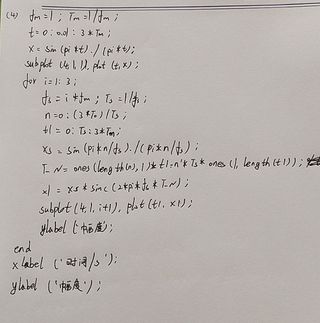 (4) fm=1 ; Tm=1/fm ;
t=0:0.01:3*Tm;
x=sin(pi*t)./(pi*t);
subplot(4,1,1), plot(t,x);
for i=1:3;
fs=i*fm; Ts=1/fs;
n=0:(3*Tm)/Ts;
t1=0:Ts:3*Tm;
xs=sin(pi*n/fs)./(pi*n/fs);
T-N=ones(length(n),1)*t1-n'*Ts*ones(1,length(t1));
x1=xs*sinc(2*pi*fs*T-N);
subplot(4,1,i+1), plot(t1,x1);
ylabel('幅度');
end
xlabel('时间/s');
ylabel('幅度');